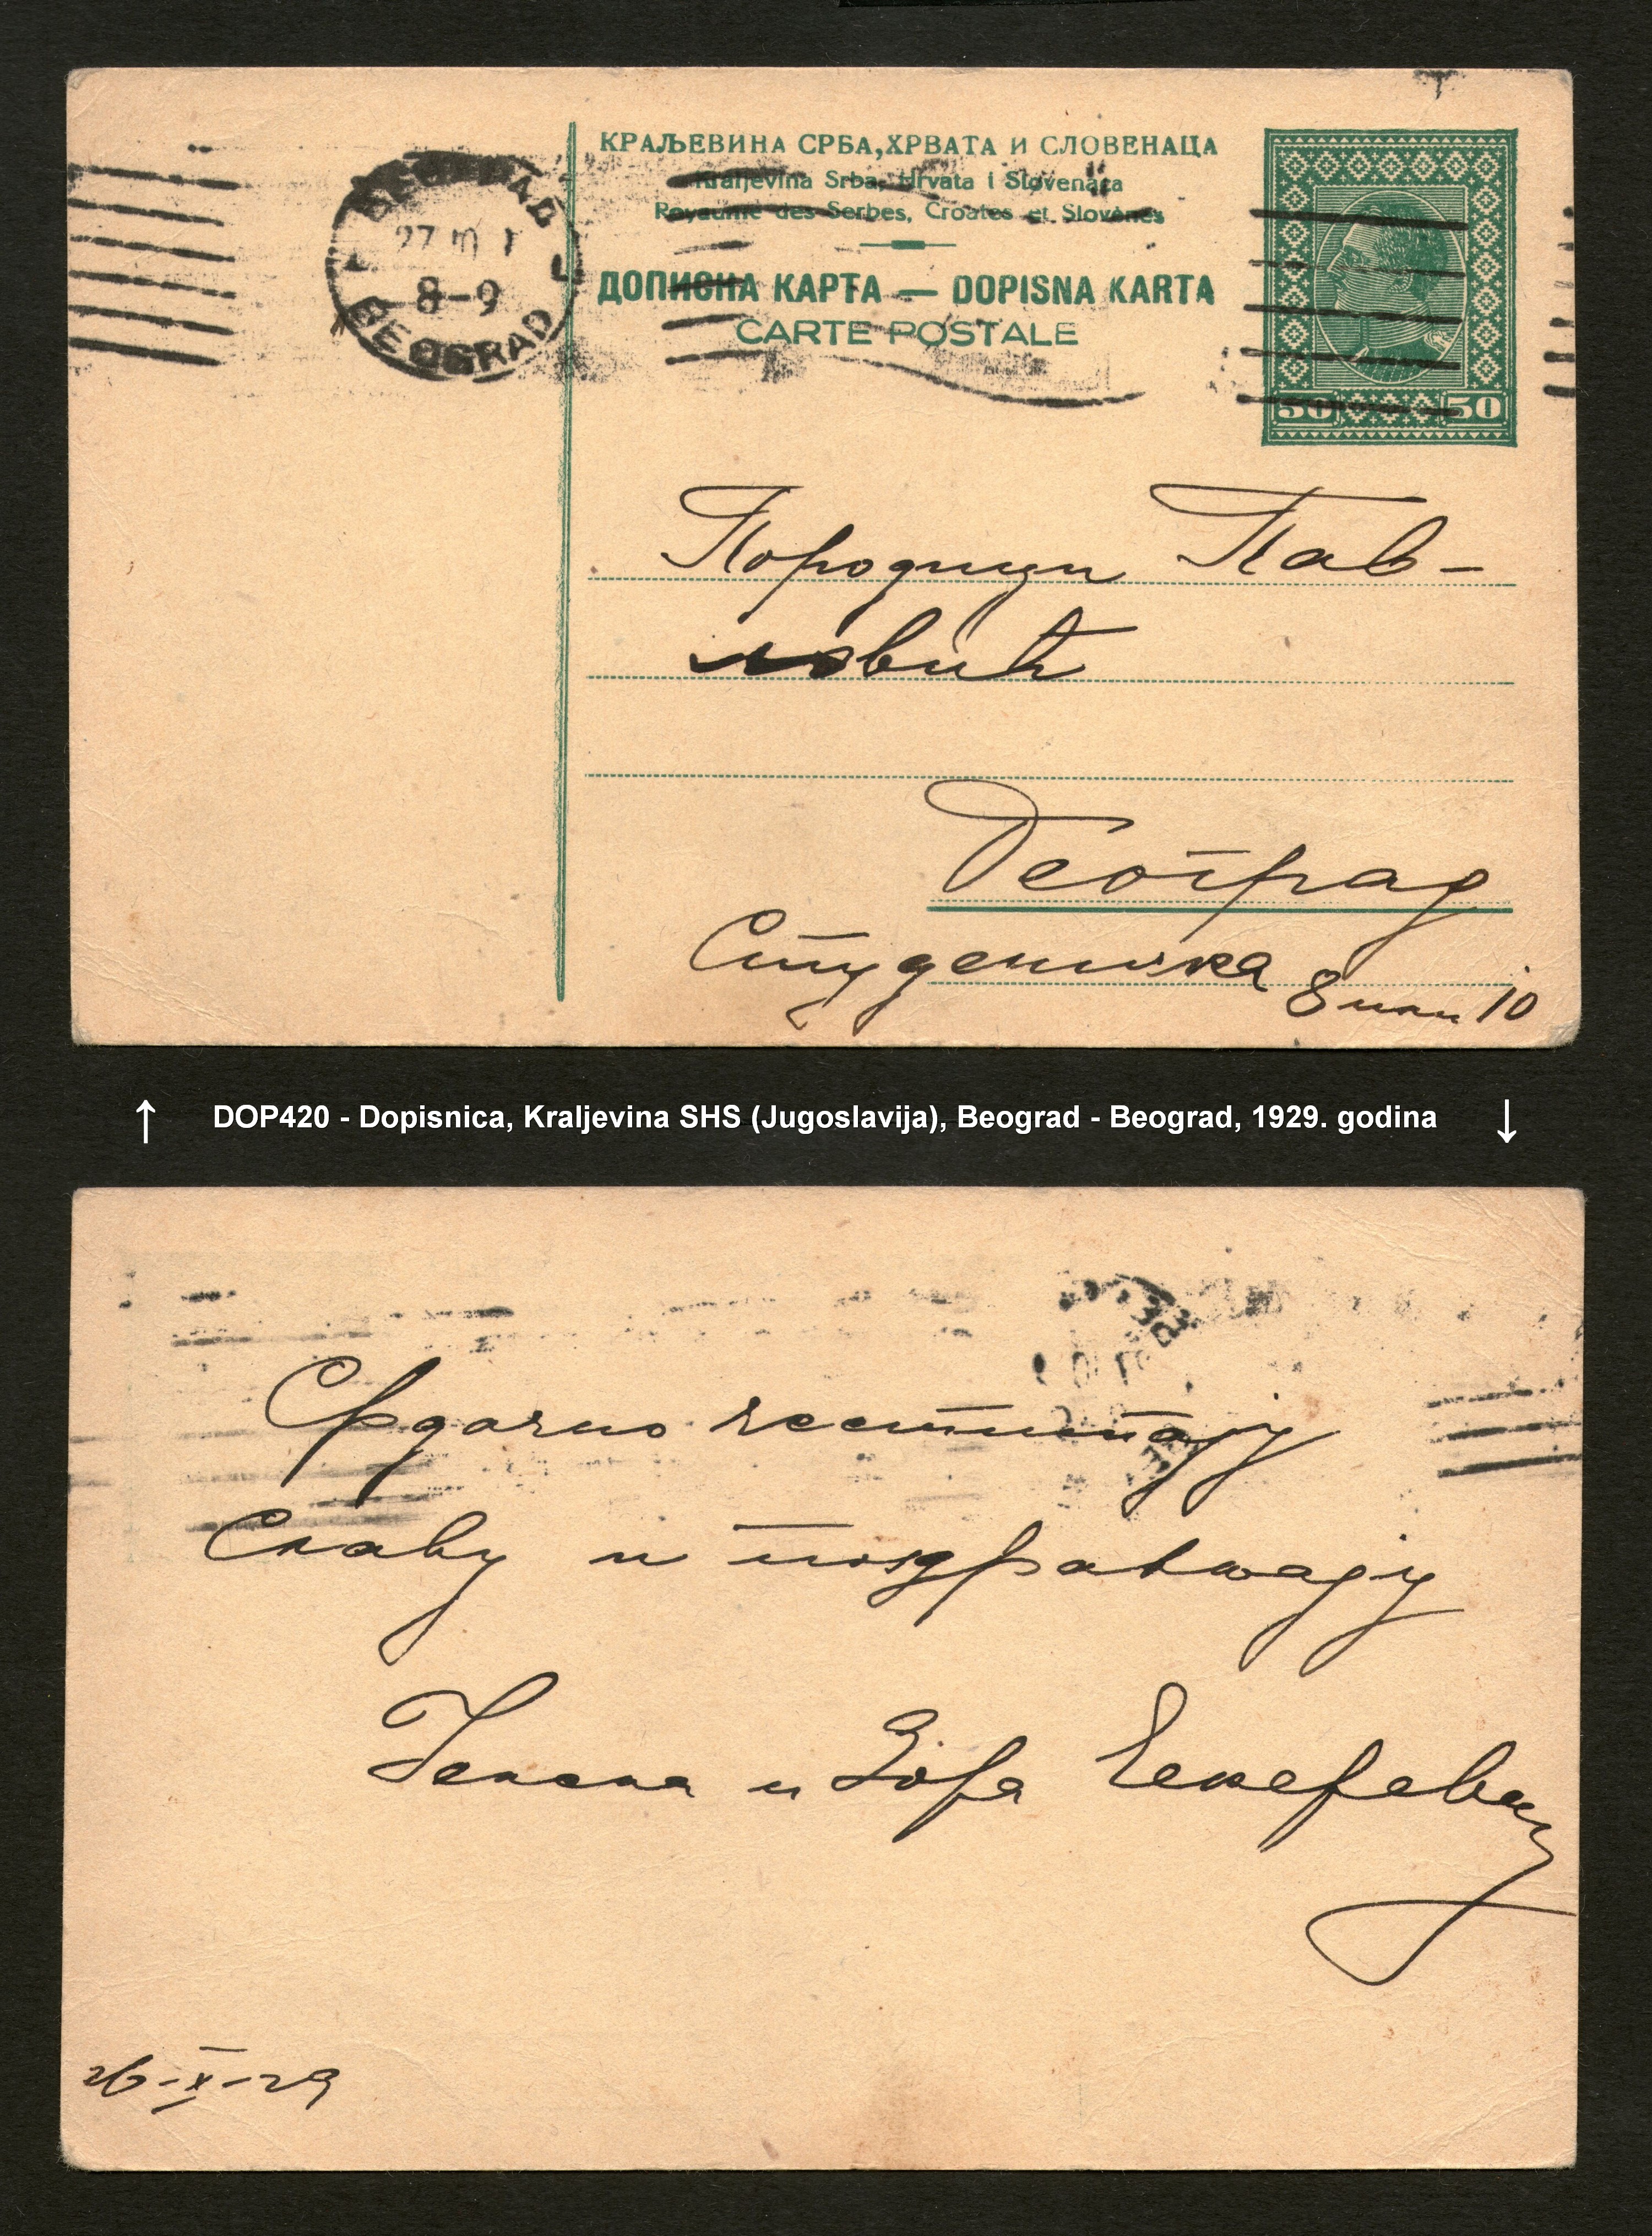 КРАЉЕВИНА СРБА, ХРВАТА И СЛОВЕНАЦА
Kraljevina Srba, Hrvata i Slovenaca
Royaume des Serbes, Croates et Slovènes
ДОПИСНА КАРТА — DOPISNA KARTA
CARTE POSTALE
БЕОГРАД
27
8-9
BEOGRAD
50 50
Породици Пав-
ловић
Београд
Студеничка 8 или 10
↑ DOP420 - Dopisnica, Kraljevina SHS (Jugoslavija), Beograd - Beograd, 1929. godina ↓
Срдачно честитају
Славу и поздрављају
и Зора
26-X-29